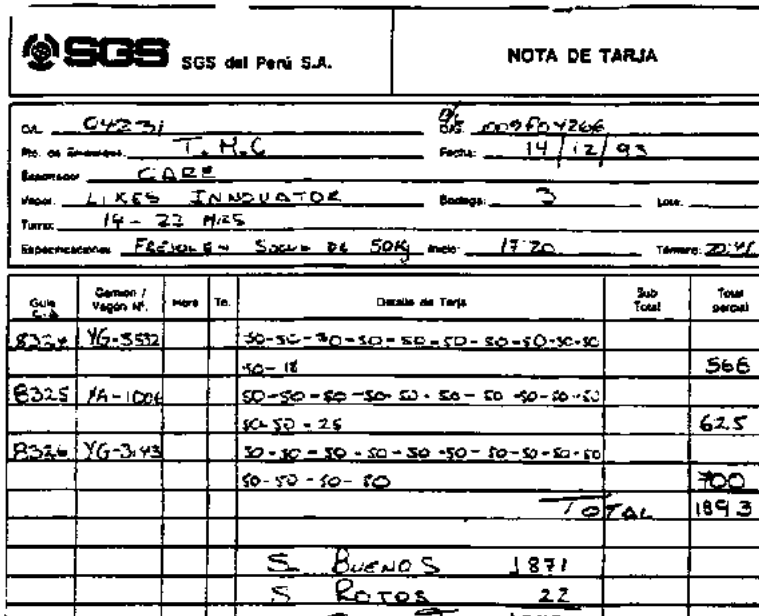 SGS SGS del Perú S.A. NOTA DE TARJA
O/L. 04231
Pto. de Embarque. T.M.C Fecha: 14/12/93
Exportador CARE
Vapor. LIKES INNOVATOR Bodega: 3 Lote.
Turno: 14 - 22 HRS
Especificaciones FREJOL EN SACOS DE 50Kg Inicio: 17:20 Término:
Guía Camión / Vagón Nº. Hora Detalle de Tarja Sub Total Total parcial
8324 YG-3532 50-50-50-50-50-50-50-50-50-50
50-18 568
8325 50-50-50-50-50-50-50-50-50-50
50-50-25 625
8326 50-50-50-50-50-50-50-50-50-50
50-50-50-50 700
TOTAL 1893
S BUENOS 1871
S ROTOS 22